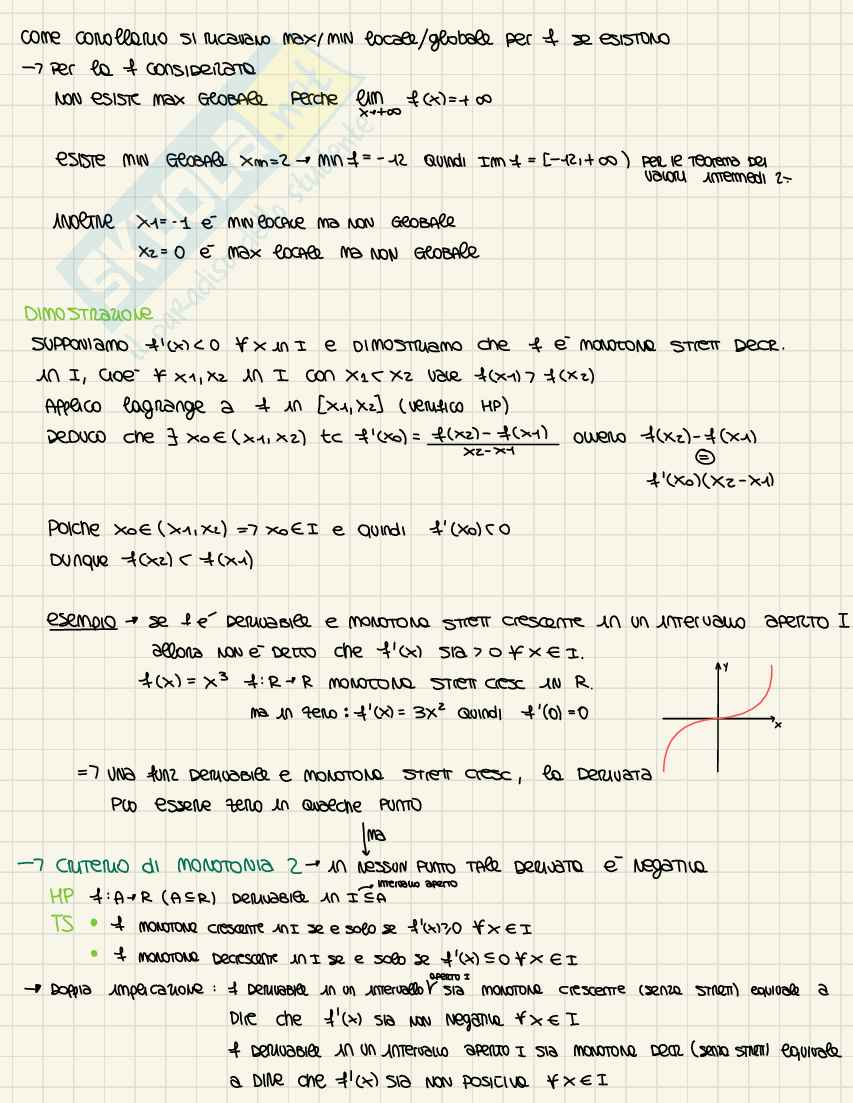 come corollario si ricavano max/min locale/globale per f se esistono
→ per la f considerata
non esiste max globale perche lim x→+∞ f(x)=+∞
esiste min globale xm=2 → min f=-12 quindi Im f=[-12,+∞) per le teorema dei valori intermedi 2÷
inoltre x1=-1 e- min locale ma non globale
x2=0 e- max locale ma non globale
DIMOSTRAZIONE
supponiamo f'(x)<0 ∀x in I e dimostriamo che f e- monotona strett decr.
in I, cioe- ∀ x1,x2 in I con x1<x2 vale f(x1)>f(x2)
Applico lagrange a f in [x1,x2] (verifico HP)
Deduco che ∃ x0∈(x1,x2) tc f'(x0)= f(x2)-f(x1) / x2-x1 ovvero f(x2)-f(x1)
=
f'(x0)(x2-x1)
Poiche x0∈(x1,x2) => x0∈I e quindi f'(x0)<0
Dunque f(x2)<f(x1)
esempio → se f e- derivabile e monotona strett crescente in un intervallo aperto I
allora non e- detto che f'(x) sia >0 ∀x∈I.
f(x)=x³ f:R→R monotona strett cresc in R.
ma in zero: f'(x)=3x² quindi f'(0)=0
y
x
=> una funz derivabile e monotona strett cresc, la derivata
puo essere zero in qualche punto
↓ ma
→ criterio di monotonia 2 → in nessun punto tale derivata e- negativa
HP f:A→R (A⊆R) derivabile in I⊆A → intervallo aperto
TS • f monotona crescente in I se e solo se f'(x)≥0 ∀x∈I
• f monotona decrescente in I se e solo se f'(x)≤0 ∀x∈I
→ Doppia implicazione: f derivabile in un intervallo aperto I sia monotona crescente (senza strett) equivale a
dire che f'(x) sia non negativa ∀x∈I
f derivabile in un intervallo aperto I sia monotona decr (senza strett) equivale
a dire che f'(x) sia non positiva ∀x∈I
SKUOLA.net
il paradiso dello studente